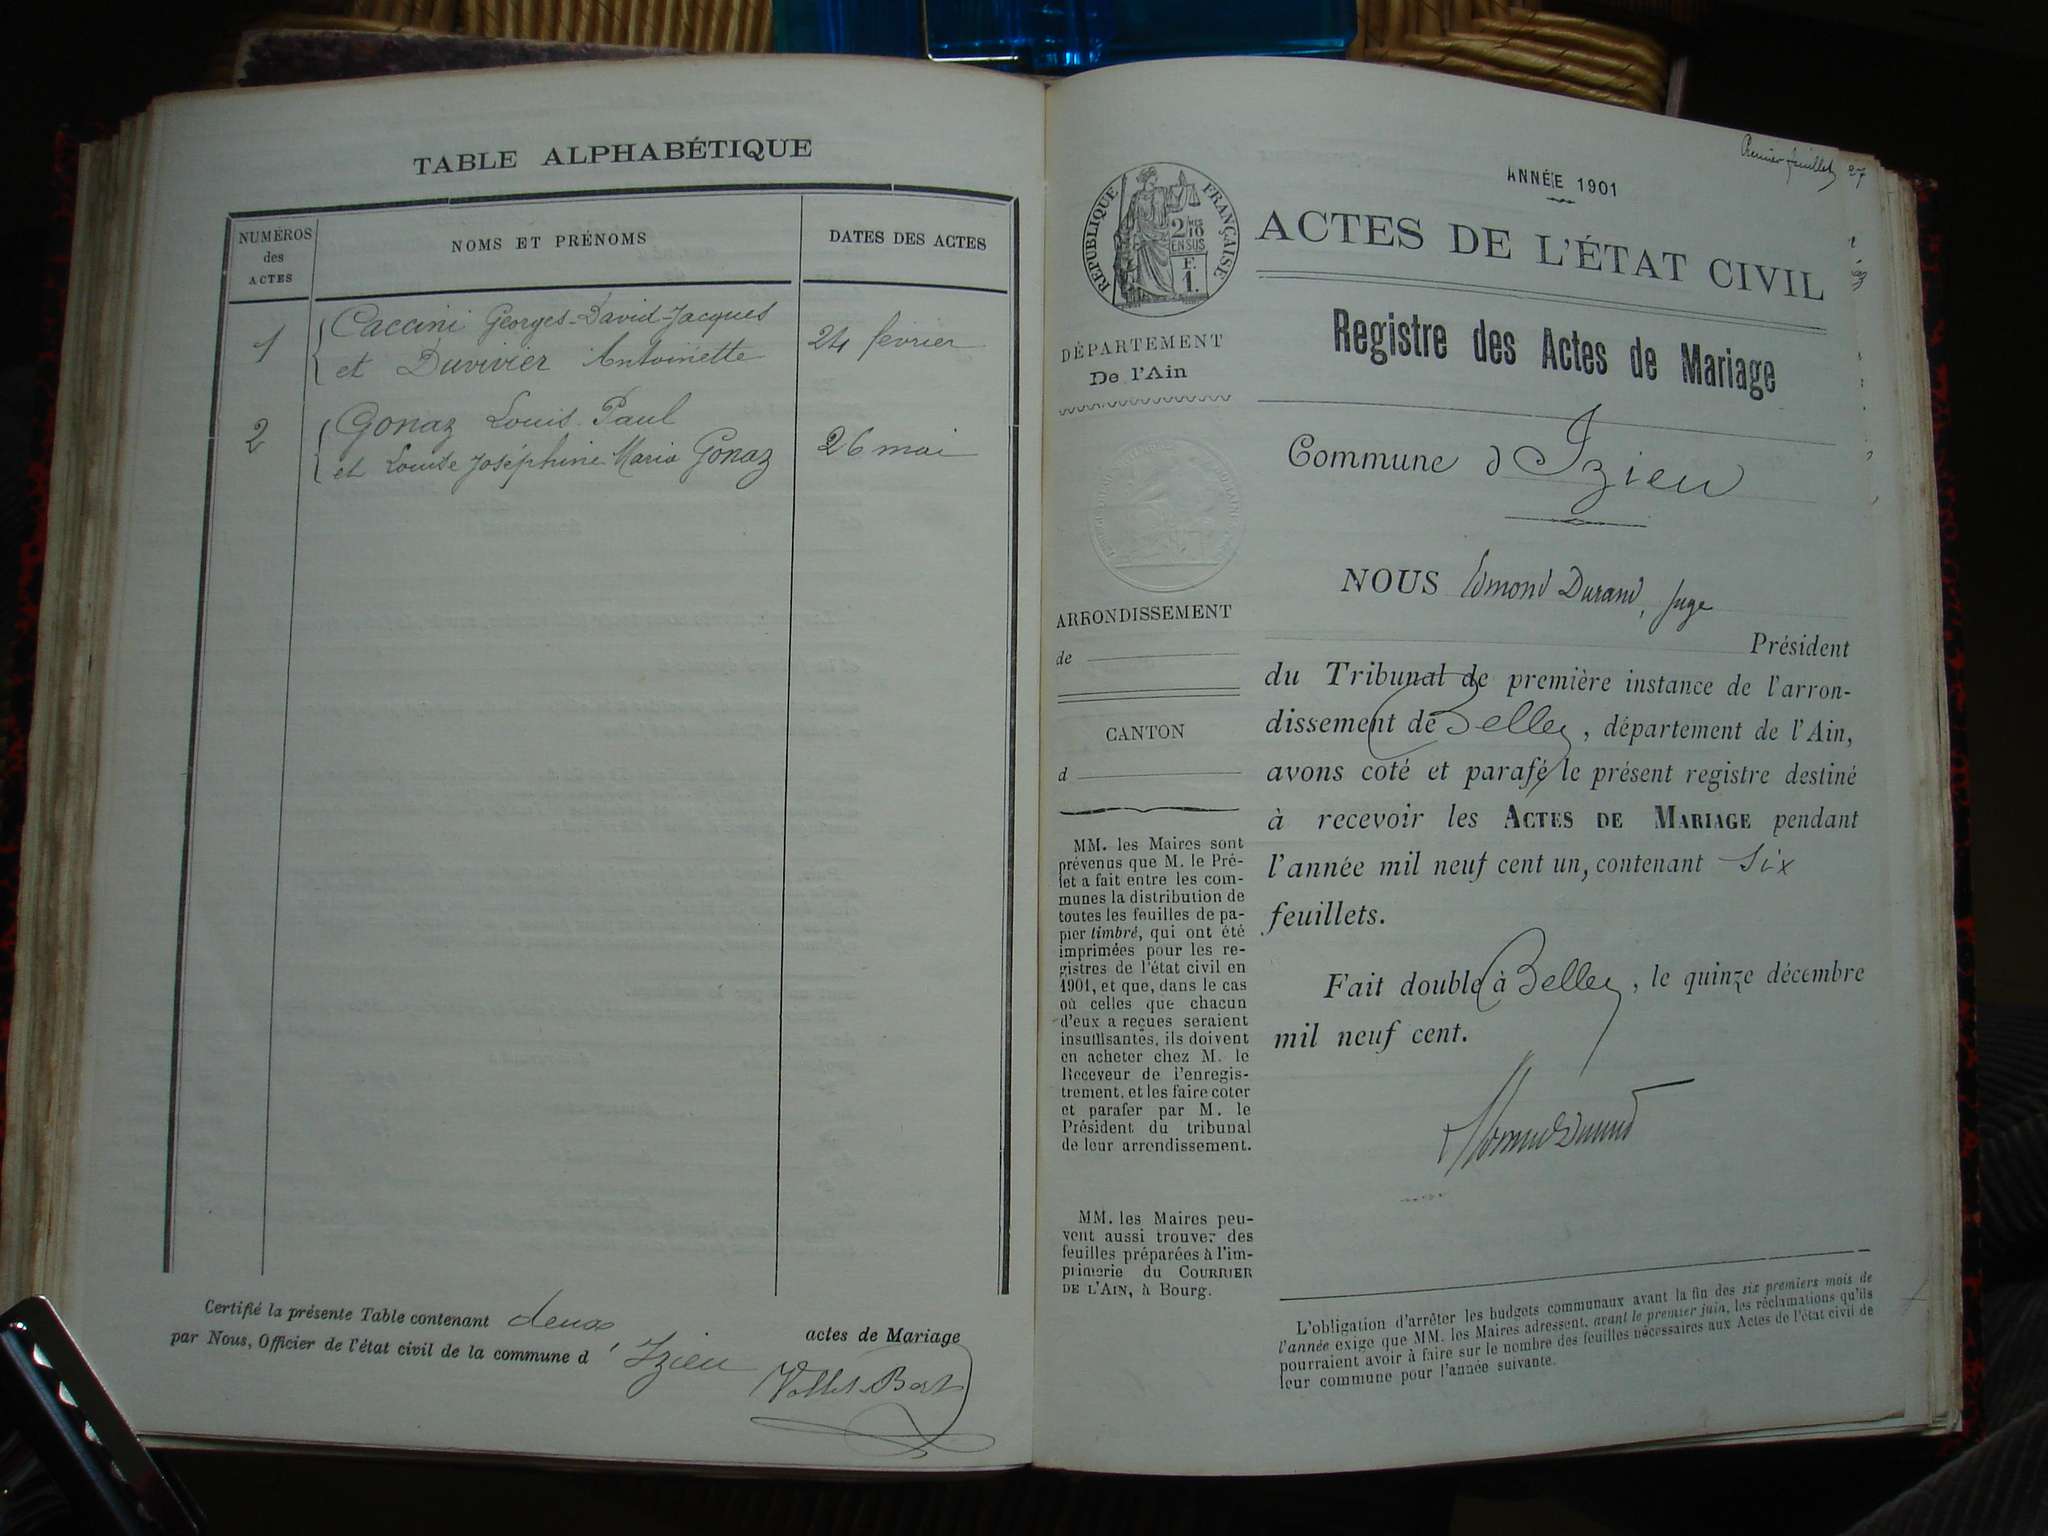 TABLE ALPHABÉTIQUE
NUMÉROS
des
ACTES
NOMS ET PRÉNOMS
DATES DES ACTES
1
Caccini Georges-David-Jacques
et Duvivier Antoinette
24 février
2
Gonaz Louis Paul
et Louise Joséphine Maria Gonaz
26 mai
Certifié la présente Table contenant deux actes de Mariage
par Nous, Officier de l'état civil de la commune d'Izieu
Premier feuillet 27
RÉPUBLIQUE FRANÇAISE
2/10 MES
EN SUS
F.
1.
ANNÉE 1901
ACTES DE L'ÉTAT CIVIL
Registre des Actes de Mariage
DÉPARTEMENT
De l'Ain
Commune d'Izieu
NOUS Edmond Durand, Juge
ARRONDISSEMENT
de
CANTON
d
Président
du Tribunal de première instance de l'arron-
dissement de Belley, département de l'Ain,
avons coté et parafé le présent registre destiné
à recevoir les ACTES DE MARIAGE pendant
l'année mil neuf cent un, contenant six
feuillets.
Fait double à Belley, le quinze décembre
mil neuf cent.
MM. les Maires sont
prévenus que M. le Pré-
fet a fait entre les com-
munes la distribution de
toutes les feuilles de pa-
pier timbré, qui ont été
imprimées pour les re-
gistres de l'état civil en
1901, et que, dans le cas
où celles que chacun
d'eux a reçues seraient
insuffisantes, ils doivent
en acheter chez M. le
Receveur de l'enregis-
trement, et les faire coter
et parafer par M. le
Président du tribunal
de leur arrondissement.
MM. les Maires peu-
vent aussi trouver des
feuilles préparées à l'im-
primerie du COURRIER
DE L'AIN, à Bourg.
L'obligation d'arrêter les budgets communaux avant la fin des six premiers mois de
l'année exige que MM. les Maires adressent, avant le premier juin, les réclamations qu'ils
pourraient avoir à faire sur le nombre des feuilles nécessaires aux Actes de l'état civil de
leur commune pour l'année suivante.